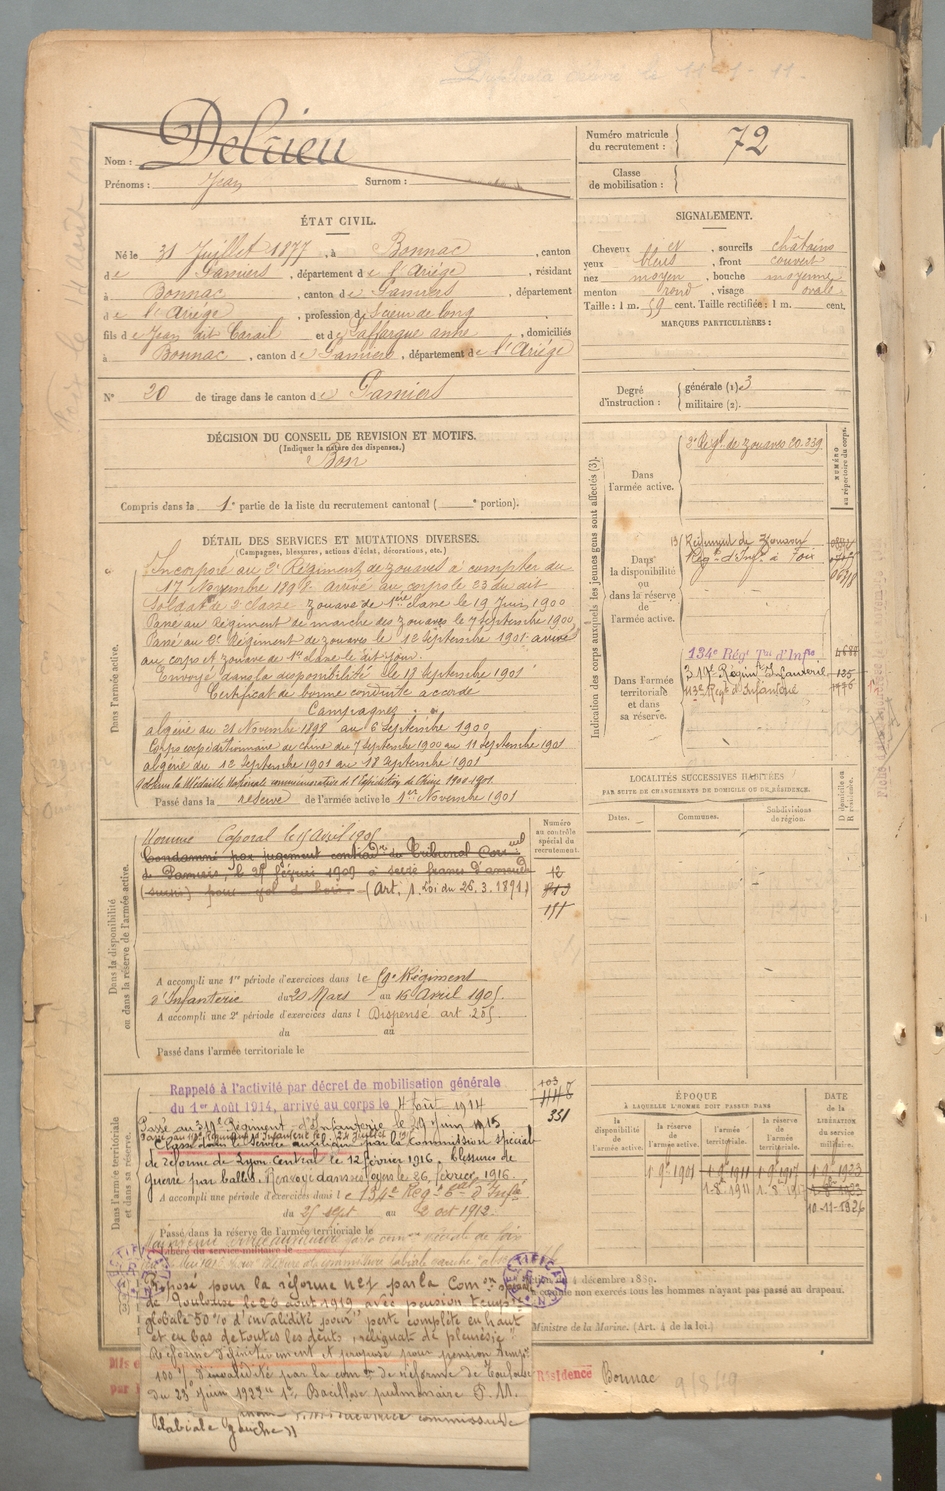 Duplicata délivré le 11-1-11.
Nom : Delrieu
Prénoms : Jean Surnom :
Numéro matricule du recrutement : 72
Classe de mobilisation :
ÉTAT CIVIL.
Né le 31 Juillet 1877, à Bonnac, canton
de Pamiers, département de l'Ariége, résidant
à Bonnac, canton de Pamiers, département
de l'Ariége, profession de Scieur de long
fils de Jean dit Carail et de Laffargue anne, domiciliés
à Bonnac, canton de Pamiers, département de l'Ariége
N° 20 de tirage dans le canton de Pamiers
SIGNALEMENT.
Cheveux et, sourcils châtains
yeux bleus, front couvert
nez moyen, bouche moyenne
menton rond, visage ovale.
Taille : 1 m. 59 cent. Taille rectifiée : 1 m. cent.
MARQUES PARTICULIÈRES :
Degré d'instruction :
générale (1) 3
militaire (2).
DÉCISION DU CONSEIL DE REVISION ET MOTIFS.
(Indiquer la nature des dispenses.)
Bon
Compris dans la 1e partie de la liste du recrutement cantonal ( e portion).
DÉTAIL DES SERVICES ET MUTATIONS DIVERSES.
(Campagnes, blessures, actions d'éclat, décorations, etc.)
Dans l'armée active.
Incorporé au 3e Régiment de zouaves à compter du
17 Novembre 1898. Arrivé au corps le 23 du dit
Soldat de 2e classe. Zouave de 1ère classe le 19 Juin 1900
Passé au Régiment de marche des zouaves le 7 septembre 1900
Passé au 3e Régiment de zouaves le 12 Septembre 1901 arrivé
au corps et zouave de 1re classe le dit jour.
Envoyé dans la disponibilité le 18 septembre 1901
Certificat de bonne conduite accordé
Campagnes
algérie du 21 Novembre 1898 au 6 septembre 1900
Corps expéditionnaire de chine du 7 septembre 1900 au 11 septembre 1901
algérie du 12 septembre 1901 au 18 septembre 1901
Obtenu la Médaille Nationale commémorative de l'Expédition de Chine 1900-1901
Passé dans la réserve de l'armée active le 1er Novembre 1901
Indication des corps auxquels les jeunes gens sont affectés (3).
NUMÉRO au répertoire du corps.
Dans l'armée active.
3e Régt de zouaves CO.339
Dans la disponibilité ou dans la réserve de l'armée active.
Régiment de Zouaves
Régt d'Infie à Foix
Dans l'armée territoriale et dans sa réserve.
134e Régt Tal d'Infie 4688
319e Régint Infanterie 135
113e Régt d'Infanterie
LOCALITÉS SUCCESSIVES HABITÉES
PAR SUITE DE CHANGEMENTS DE DOMICILE OU DE RÉSIDENCE.
Dates.
Communes.
Subdivisions de région.
D domicile ou R résidence.
Dans la disponibilité ou dans la réserve de l'armée active.
Numéro au contrôle spécial du recrutement.
Nommé Caporal le 15 Avril 1905
Condamné par jugement contradre du Tribunal Corrnel
de Pamiers, le 25 février 1909 à seize francs d'amende
(sursis) pour vol de bois. (Art. 1. Loi du 26.3.1891)
12
913
151
A accompli une 1re période d'exercices dans le 59e Régiment
d'Infanterie du 20 Mars au 16 Avril 1905.
A accompli une 2e période d'exercices dans l Dispensé art 205
du au
Passé dans l'armée territoriale le
Dans l'armée territoriale et dans sa réserve.
Rappelé à l'activité par décret de mobilisation générale
du 1er Août 1914, arrivé au corps le 4 Août 1914
103
351
Passé au 319e Régiment d'Infanterie le 29 Juin 1915
Classé dans le service auxiliaire par la Commission spéciale
de réforme de Lyon Central le 12 février 1916. blessures de
guerre par balles. Renvoyé dans ses foyers le 26 février 1916.
A accompli une période d'exercices dans le 134e Régt Tal d'Infie
du 25 sept au 2 oct 1912.
Passé dans la réserve de l'armée territoriale le
Libéré du service militaire le
ÉPOQUE
À LAQUELLE L'HOMME DOIT PASSER DANS
la disponibilité de l'armée active.
la réserve de l'armée active.
l'armée territoriale.
la réserve de l'armée territoriale.
DATE de la LIBÉRATION du service militaire.
1.9.1901
1.9.1911
1.9.1917
1.9.1923
1.8.1911
1.8.1917
1.8.1923
10-11-1926
RECTIFICATION
RECTIFICATION
Proposé pour la réforme n°1 par la Comon spéciale
de Toulouse le 26 août 1919 avec pension tempre
globale 50% d'invalidité pour "perte complète en haut
et en bas de toutes les dents, reliquat de pleurésie"
Réformé définitivement et proposé pour pension tempre
100% d'invalidité par la comon de réforme de Toulouse
du 23 Juin 1922 "1° Bacillose pulmonaire P.M.
commissure
labiale gauche"
4 décembre 1889.
non exercés tous les hommes n'ayant pas passé au drapeau.
Ministre de la Marine. (Art. 4 de la loi.)
Résidence Bonnac
9/8/49